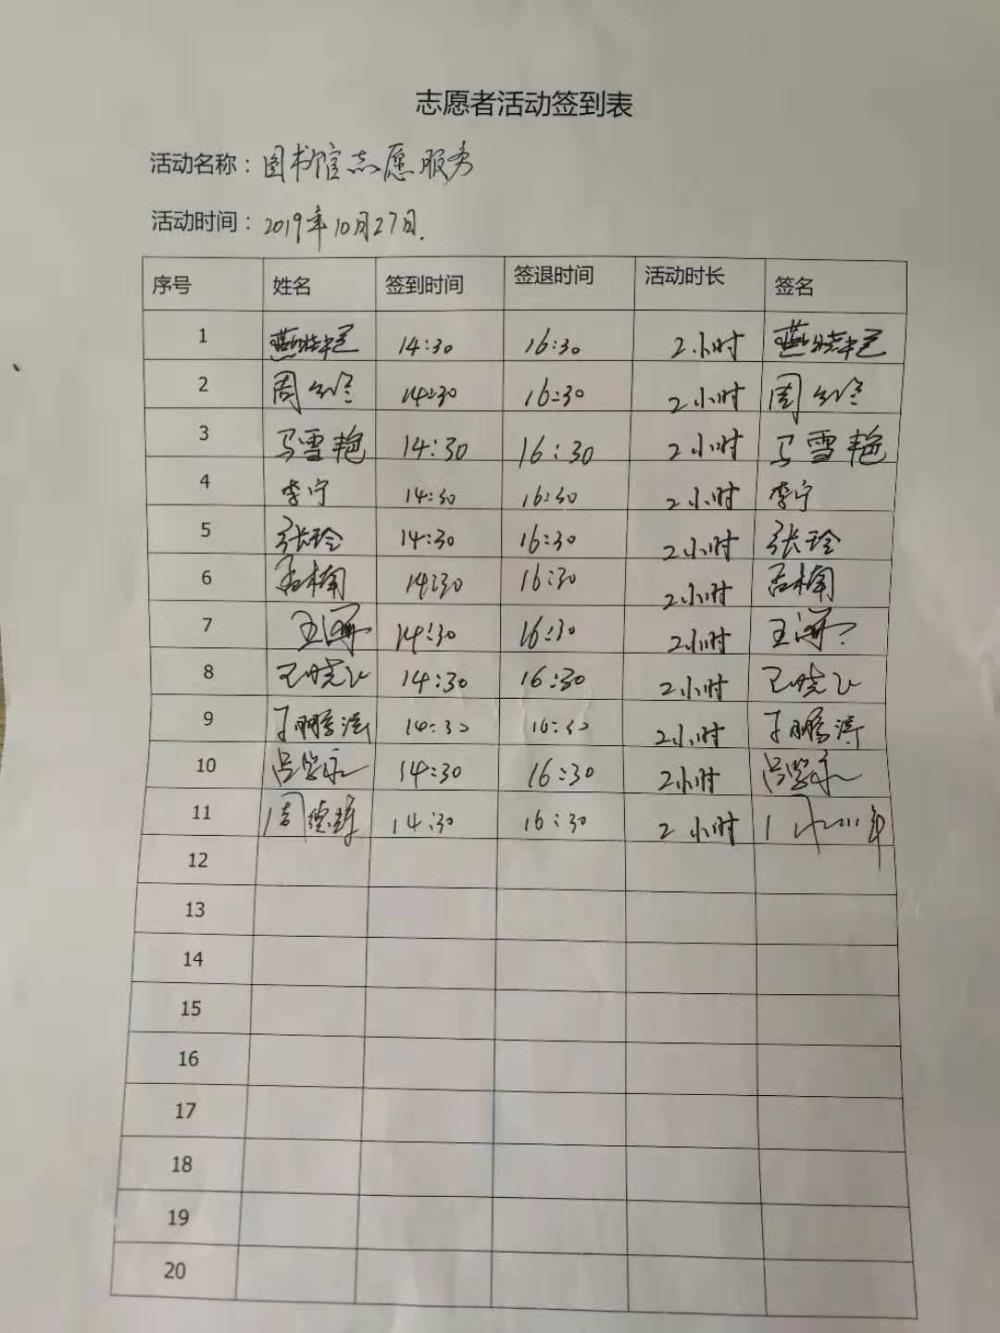 志愿者活动签到表
活动名称：图书馆志愿服务
活动时间：2019年10月27日.
序号 姓名 签到时间 签退时间 活动时长 签名
1 14:30 16:30 2小时
2 周 14:30 16:30 2小时 周
3 马雪艳 14:30 16:30 2小时 马雪艳
4 李宁 14:30 16:30 2小时 李宁
5 张玲 14:30 16:30 2小时 张玲
6 孟楠 14:30 16:30 2小时 孟楠
7 王 14:30 16:30 2小时 王
8 王晓飞 14:30 16:30 2小时 王晓飞
9 于鹏涛 14:30 16:30 2小时 于鹏涛
10 吕 永 14:30 16:30 2小时 吕 永
11 周德 14:30 16:30 2小时
12
13
14
15
16
17
18
19
20